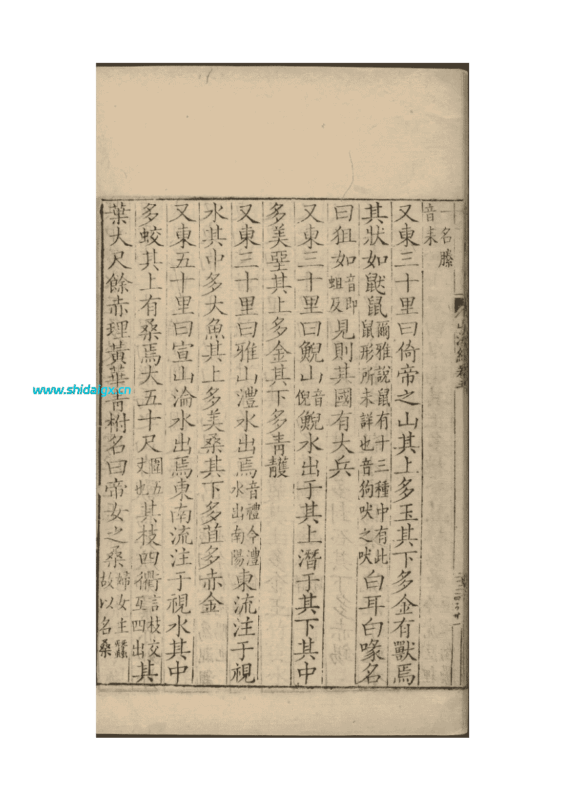 一名滕
音來
又東三十里曰倚帝之山其上多玉其下多金有獸焉
其狀如鼣鼠爾雅說鼠有十三種中有此鼠形所未詳也音狗吠之吠白耳白喙名
曰狙如音即蛆反見則其國有大兵
又東三十里曰鯢山音鯢倪鯢水出于其上潛于其下其中
多美堊其上多金其下多青雘
又東三十里曰雅山澧水出焉音禮今澧水出南陽東流注于視
水其中多大魚其上多美桑其下多苴多赤金
又東五十里曰宣山淪水出焉東南流注于視水其中
多蛟其上有桑焉大五十尺圍五丈也其枝四衢言枝交互四出其
葉大尺餘赤理黃華青柎名曰帝女之桑婦女主蠶故以名桑
www.shidaigx.cn